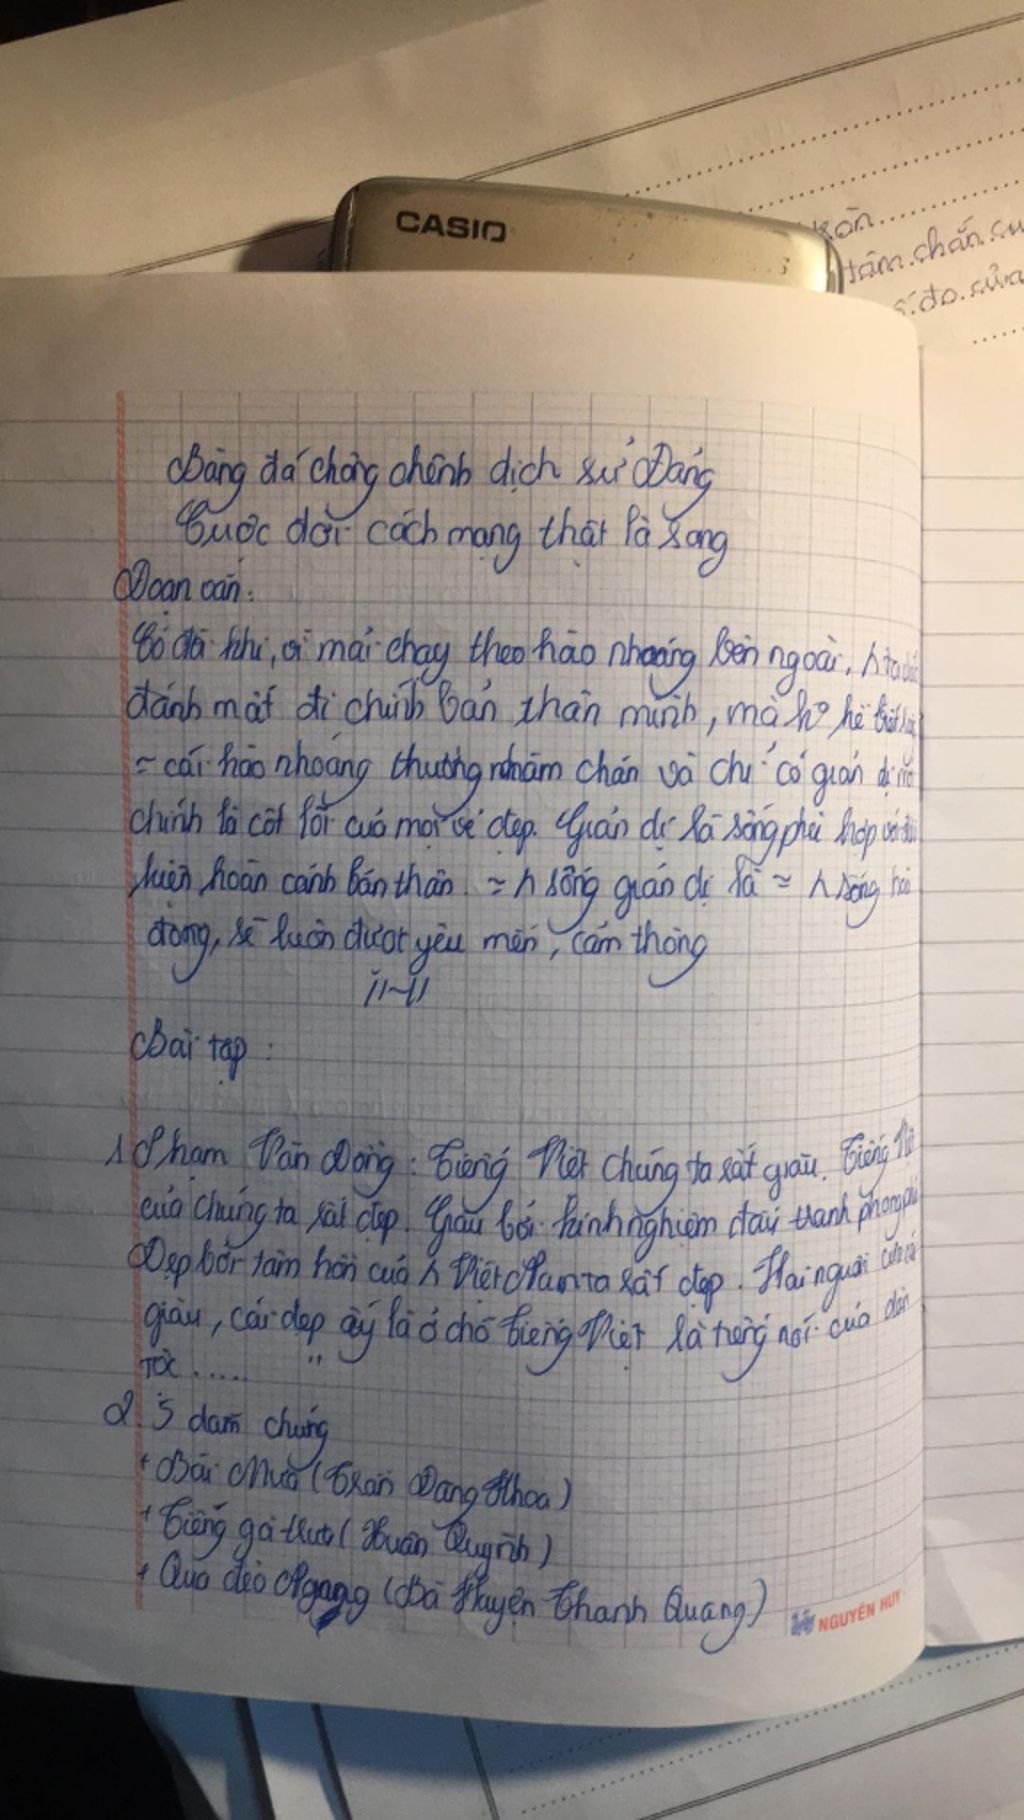 CASIO
tâm chắn
đo sửa
Bàng đá chông chênh dịch sử Đảng
Cuộc đời cách mạng thật là sang
Đoạn văn:
Có đôi khi, vì mải chạy theo hào nhoáng bên ngoài,
đánh mất đi chính bản thân mình, mà ko hề biết
= cái hào nhoáng thường nhàm chán và chỉ có giản dị mới
chính là cốt lõi của mọi vẻ đẹp. Giản dị là sống phù hợp với điều
kiện hoàn cảnh bản thân. = sống giản dị là = sống hòa
đồng, sẽ luôn được yêu mến, cảm thông
Bài tập:
1. Phạm Văn Đồng: Tiếng Việt chúng ta rất giàu. Tiếng Việt
của chúng ta rất đẹp. Giàu bởi kinh nghiệm đấu tranh phong phú
Đẹp bởi tâm hồn của Việt Nam ta rất đẹp. Hai nguồn của cái
giàu, cái đẹp ấy là ở chỗ tiếng Việt là tiếng nói của dân
tộc ....."
2. 3 dẫn chứng
+ Bài Mưa (Trần Đăng Khoa)
+ Tiếng gà trưa (Xuân Quỳnh)
+ Qua đèo Ngang (Bà Huyện Thanh Quang)
NGUYÊN HUY